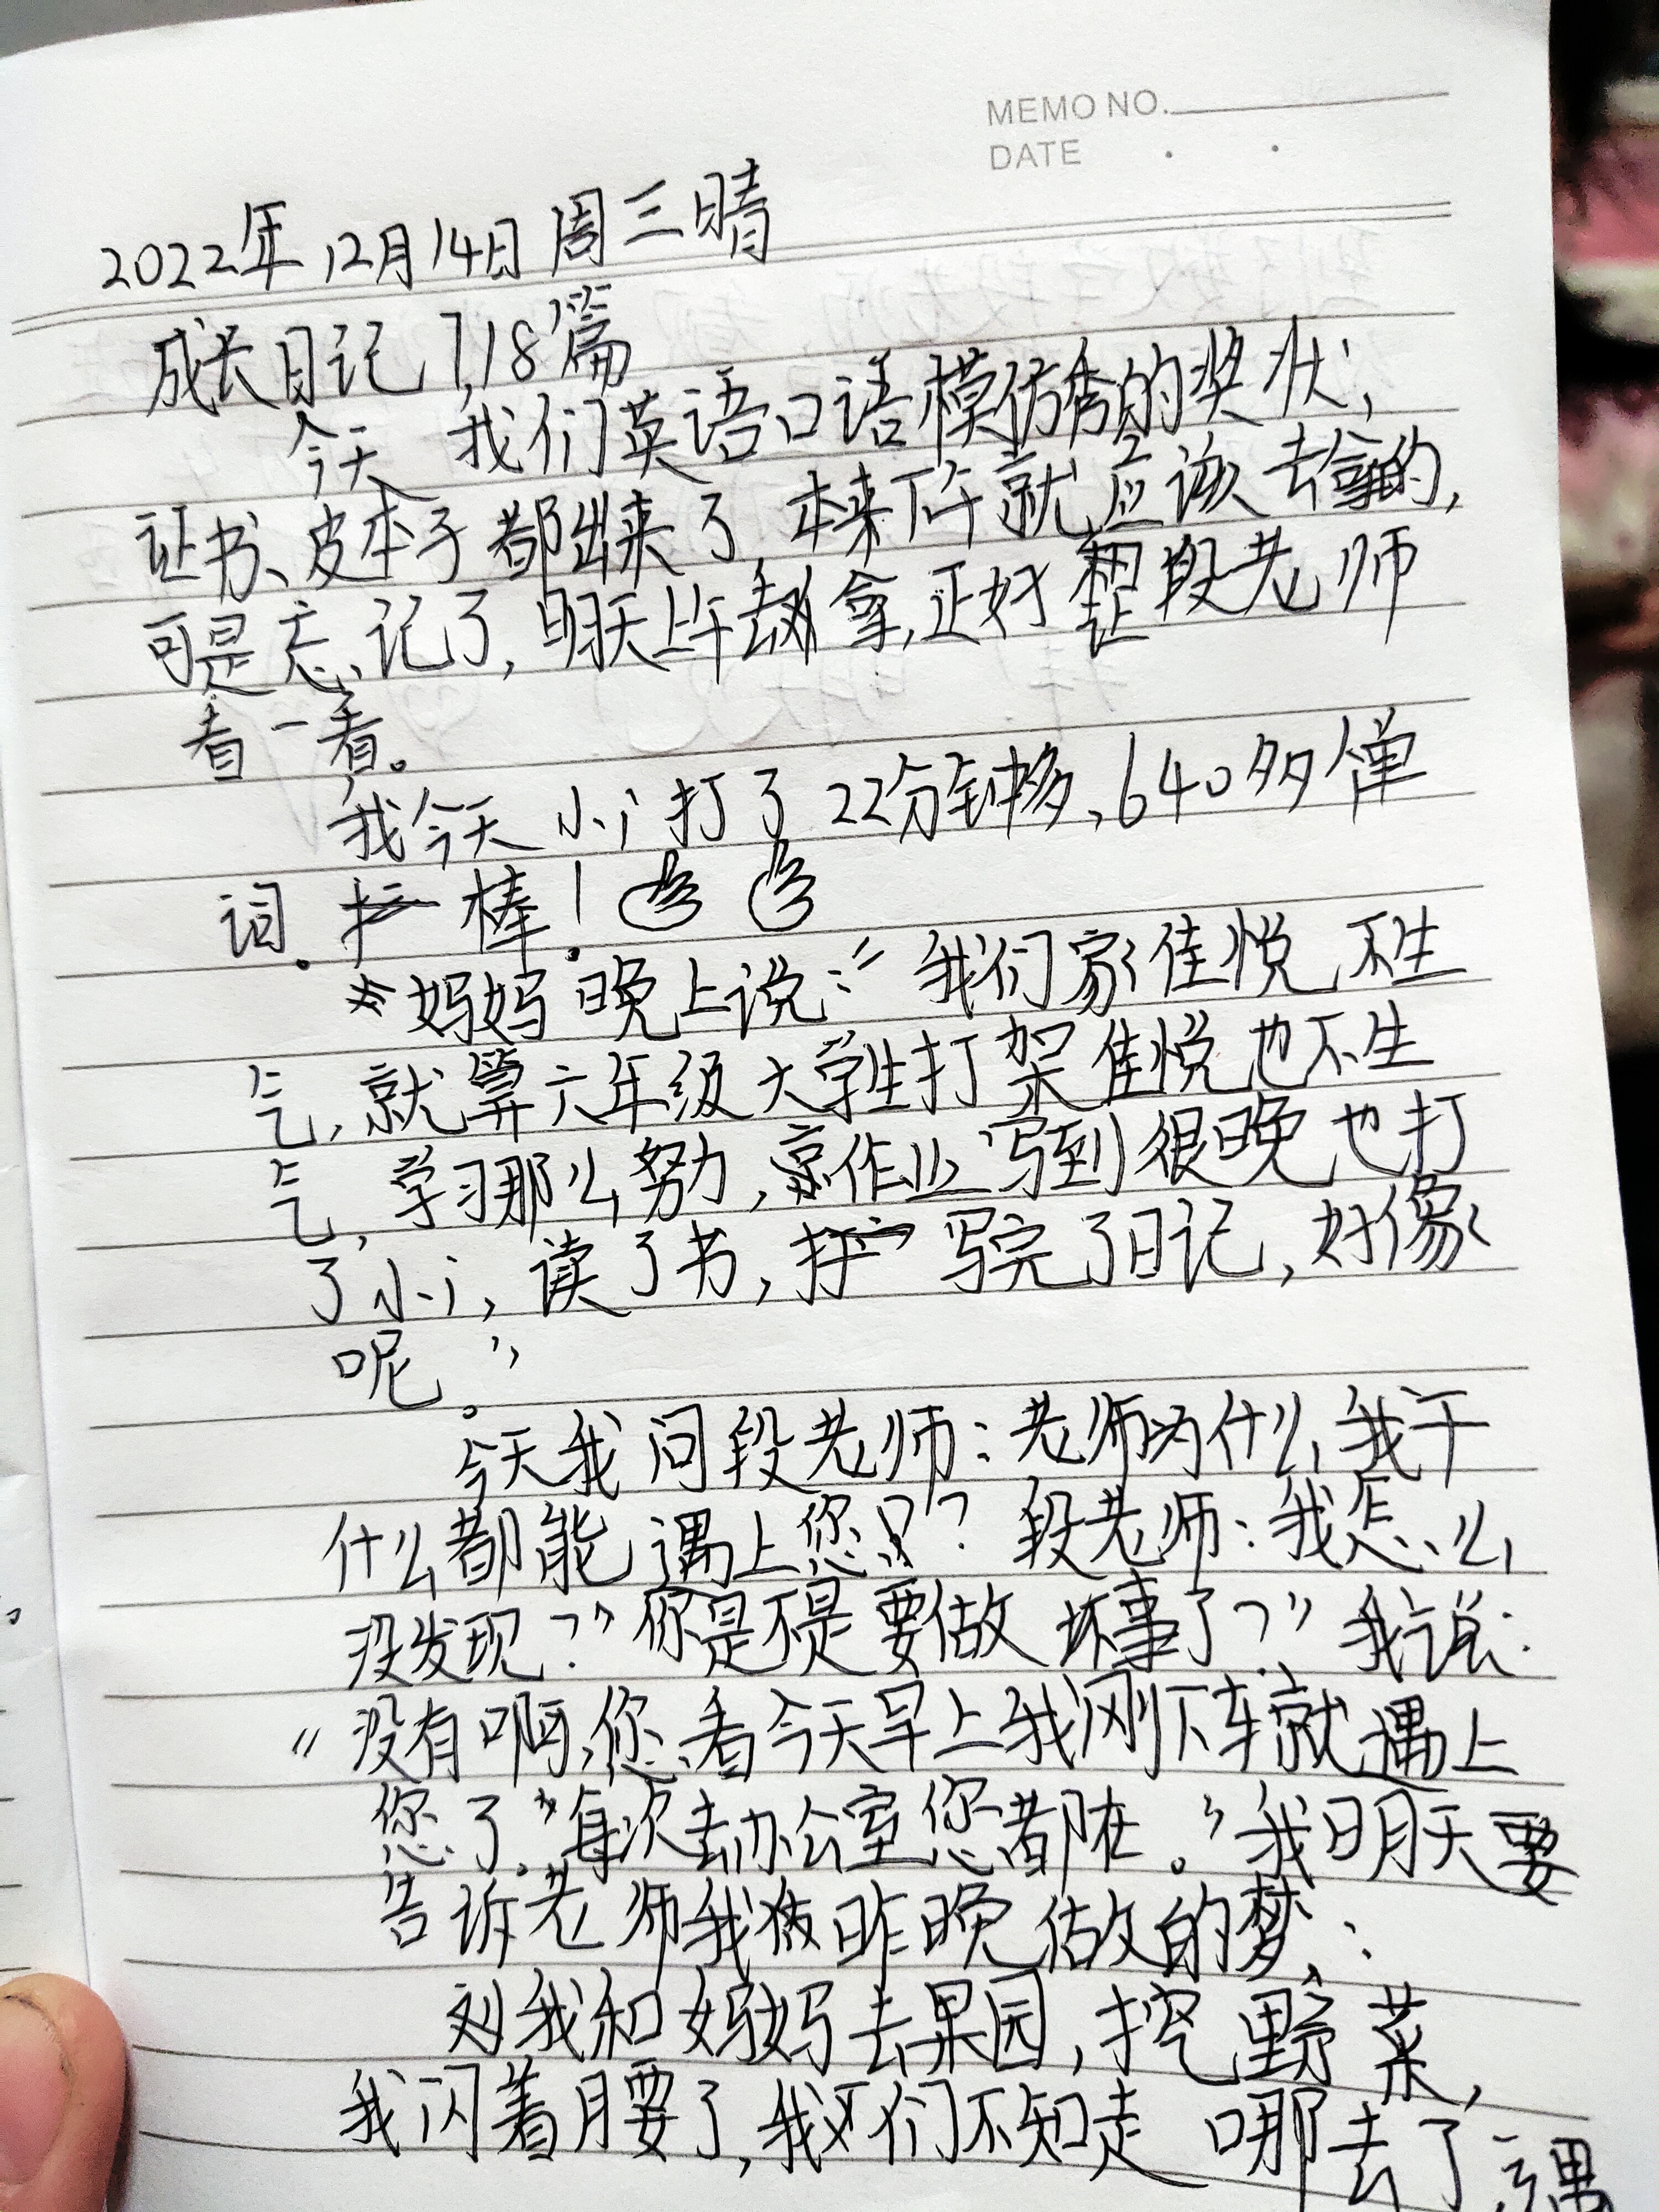 MEMO NO.
DATE
2022年12月14日周三晴
成长日记718篇
今天 我们英语口语模仿秀的奖状,
证书、皮本子都出来了,本来下午就应该去拿的,
可是忘记了,明天上午去拿,正好让段老师
看一看。
我今天小i打了22分钟多,640多个单
词。棒!
妈妈晚上说:“我们家佳悦,不生
气,就算六年级大学生打架佳悦也不生
气,学习那么努力,作业写到很晚也打
了小i,读了书,写完了日记,好像
呢。”
今天我问段老师:老师为什么我干
什么都能遇上您!?段老师:我怎么
没发现?”你是不是要做坏事了?”我说:
“没有啊,您看今天早上我刚下车就遇上
您了”每次去办公室您都在。”我明天要
告诉老师我昨晚做的梦:
我和妈妈去果园,挖野菜,
我闪着腰了,我们不知走哪去了,遇